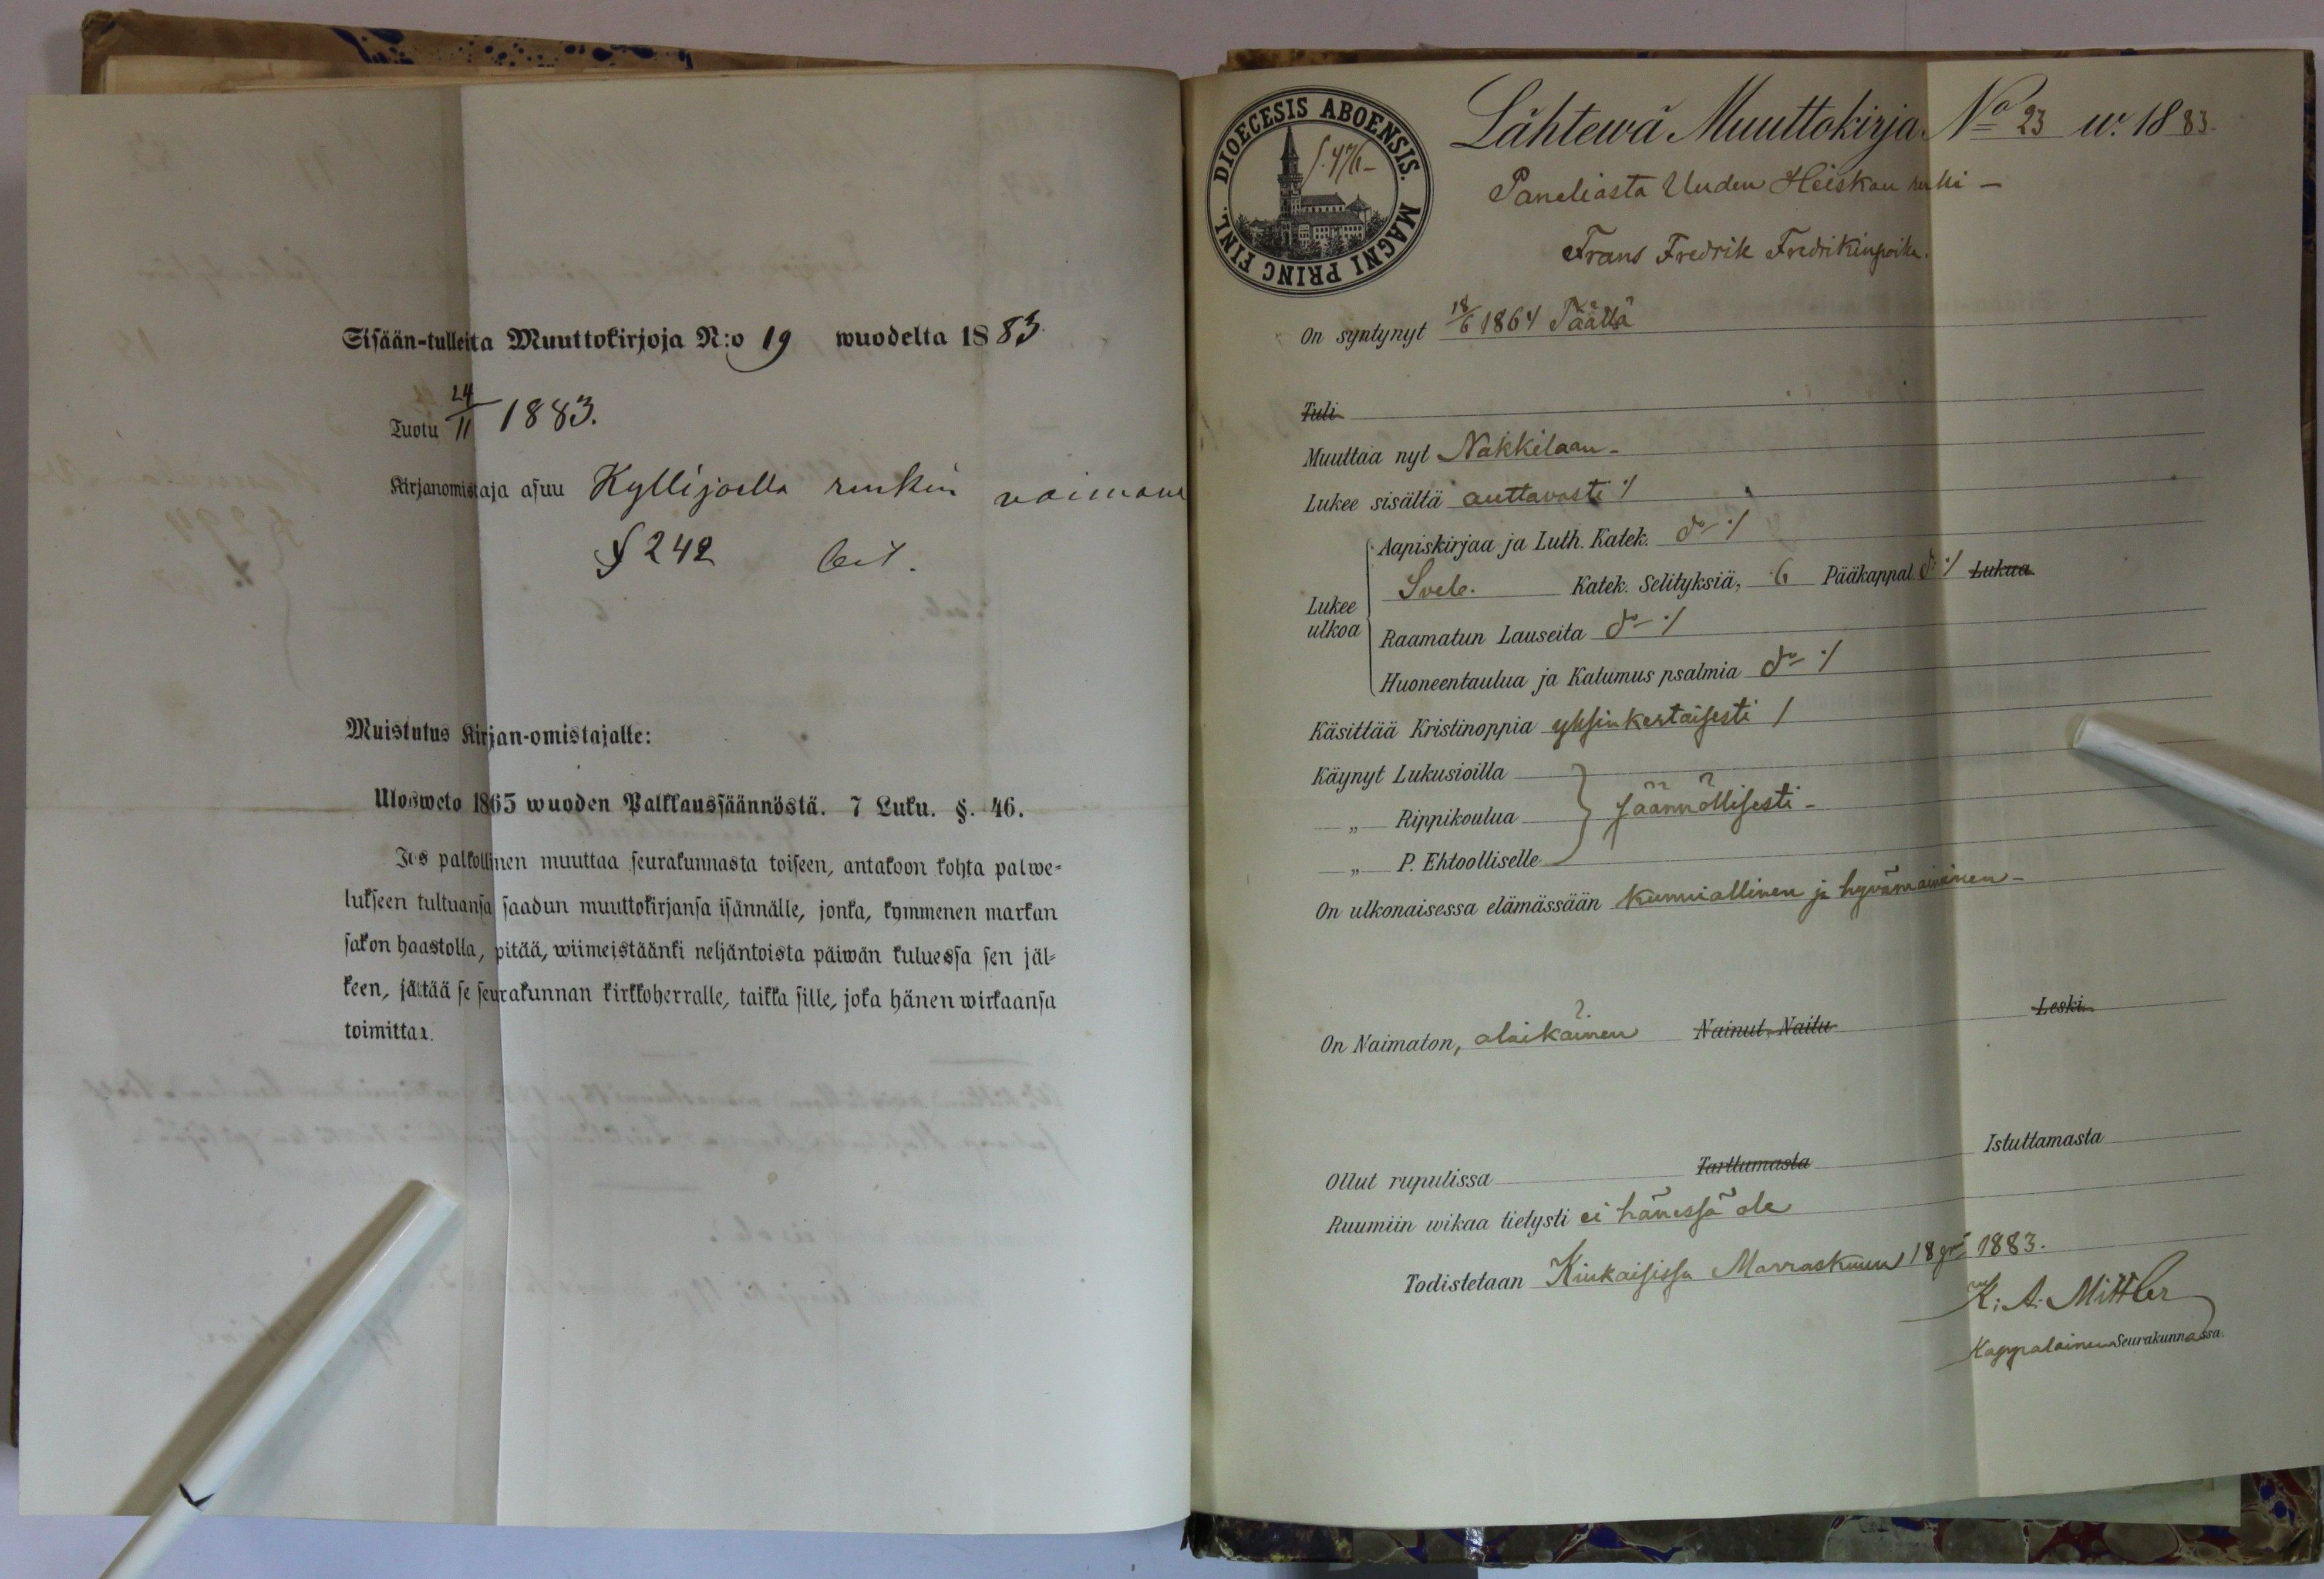 Sisään-tulleita Muuttokirjoja N:o 19 wuodelta 1883
Tuotu 24/11 1883.
Kirjanomistaja asuu Kyllijoella renkin vaimona
§ 242
Muistutus Kirjan-omistajalle:
Ulosweto 1865 wuoden Palkkaussäännöstä. 7 Luku. §. 46.
Jos palkollinen muuttaa seurakunnasta toiseen, antakoon kohta palwe-
lukseen tultuansa saadun muuttokirjansa isännälle, jonka, kymmenen markan
sakon haastolla, pitää, wiimeistäänki neljäntoista päiwän kuluessa sen jäl-
keen, jättää se seurakunnan kirkkoherralle, taikka sille, joka hänen wirkaansa
toimittaa.
DIOECESIS ABOENSIS. MAGNI PRINC FINL.
Lähtewä Muuttokirja No 23 w. 1883.
Paneliasta Uuden Heiskan renki –
Frans Fredrik Fredrikinpoika.
On syntynyt 18/6 1864 Täällä
Tuli
Muuttaa nyt Nakkilaan –
Lukee sisältä auttavasti ./
Lukee ulkoa
Aapiskirjaa ja Luth. Katek. do ./
Sveb. Katek. Selityksiä, 6 Pääkappal. do ./ Lukua
Raamatun Lauseita do ./
Huoneentaulua ja Katumus psalmia do ./
Käsittää Kristinoppia yksinkertaisesti /
Käynyt Lukusioilla
„ Rippikoulua säännöllisesti –
„ P. Ehtoolliselle
On ulkonaisessa elämässään kunniallinen ja hyvämaininen –
On Naimaton, alaikäinen Nainut, Naitu Leski
Ollut rupulissa Tarttumasta Istuttamasta
Ruumiin wikaa tietysti ei hänessä ole
Todistetaan Kiukaisissa Marraskuun 18 pnä 1883.
K. A. Mittler
Kappalainen Seurakunnassa.